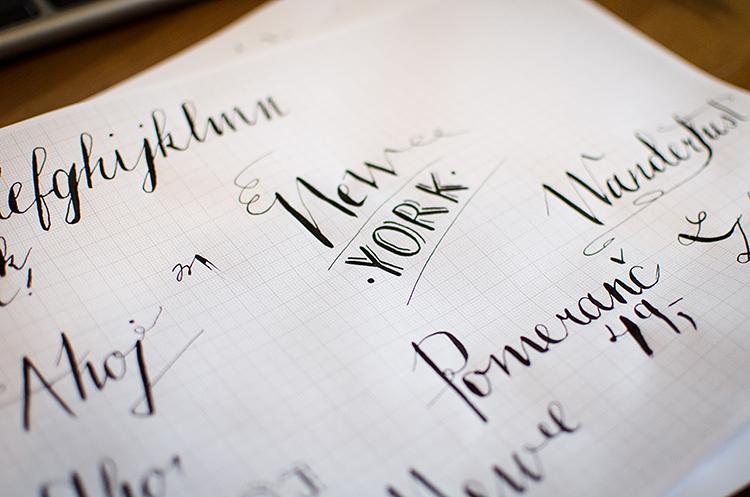 efghijklmn
New
·YORK·
Wanderlust
k!
Pomeranč
49,-
Ahoj
Ahoj
New